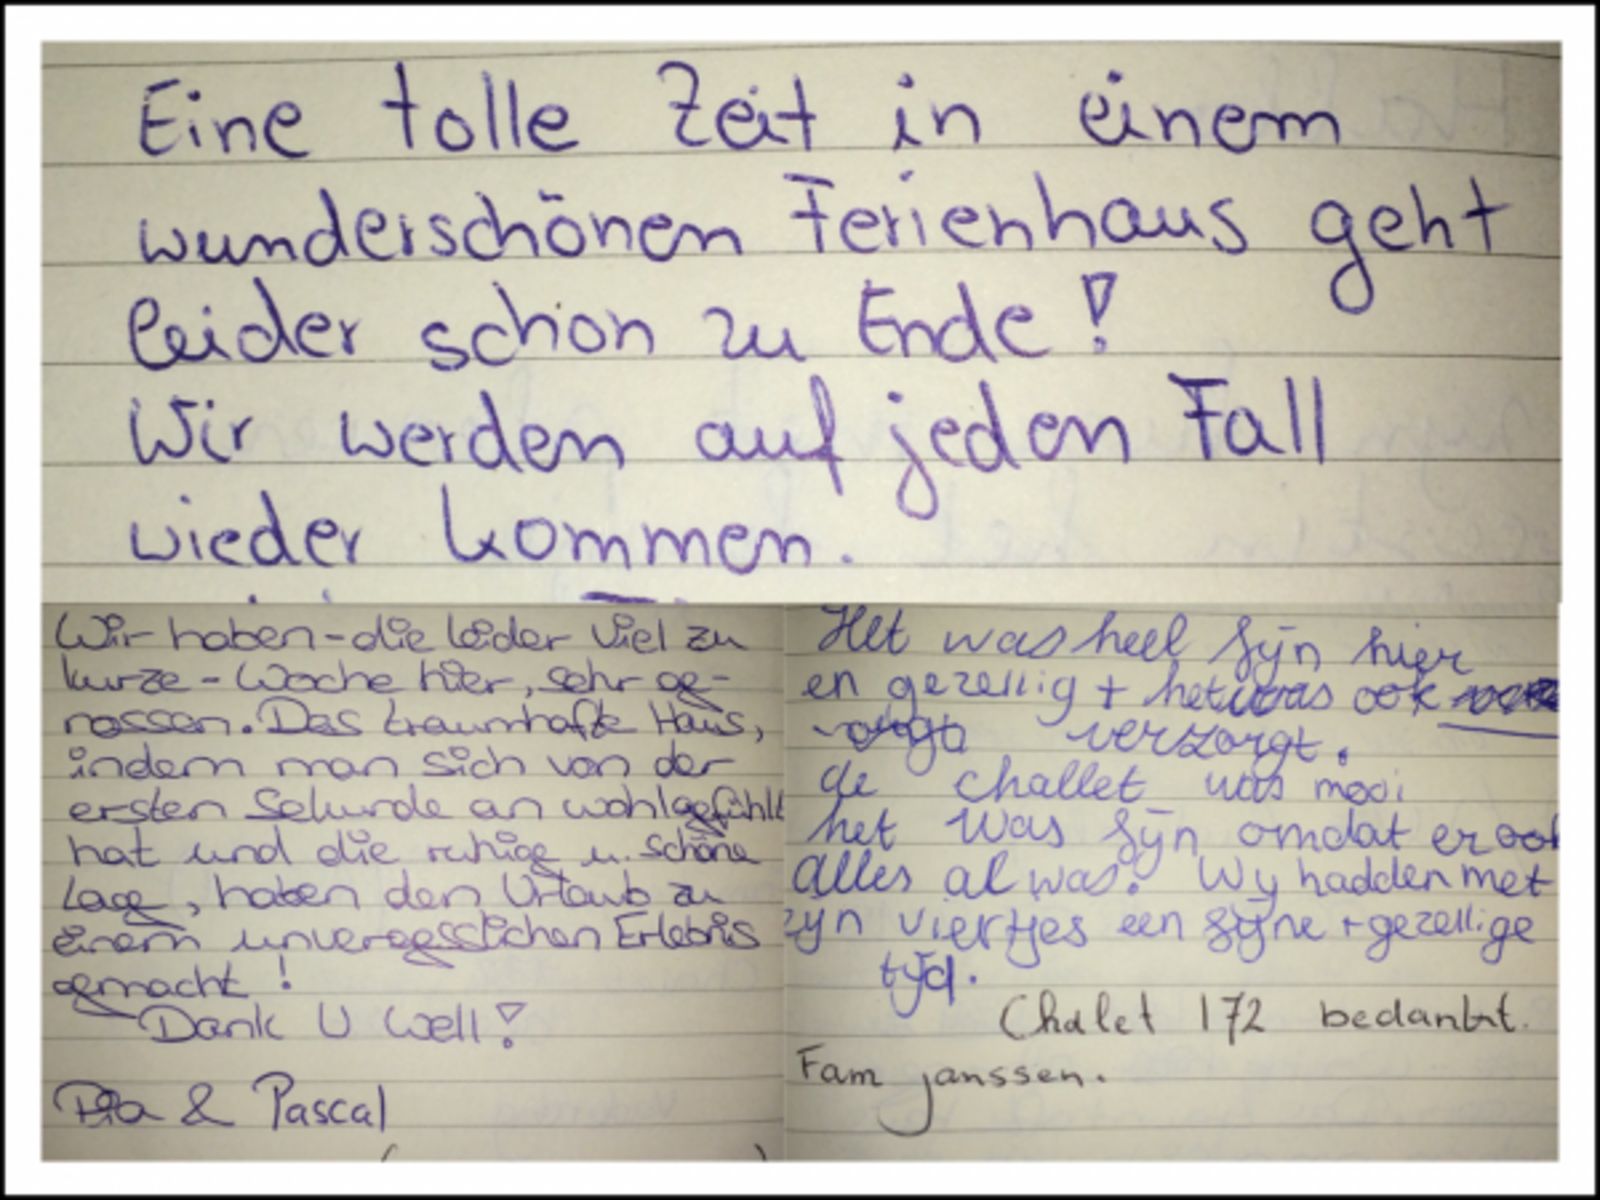 Eine tolle Zeit in einem
wunderschönen Ferienhaus geht
leider schon zu Ende!
Wir werden auf jeden Fall
wieder kommen.
Wir haben - die leider viel zu
kurze - Woche hier, sehr ge-
nossen. Das traumhafte Haus,
indem man sich von der
ersten Sekunde an wohlgefühlt
hat und die ruhige u. schöne
Lage, haben den Urlaub zu
einem unvergesslichen Erlebnis
gemacht!
Dank U Well!
Pia & Pascal
Het was heel fijn hier
en gezellig + het was ook
verzorgt.
de challet was mooi
het was fijn omdat er ook
alles al was. Wy hadden met
zyn viertjes een fijne + gezellige
tyd.
Chalet 172 bedankt.
Fam janssen.